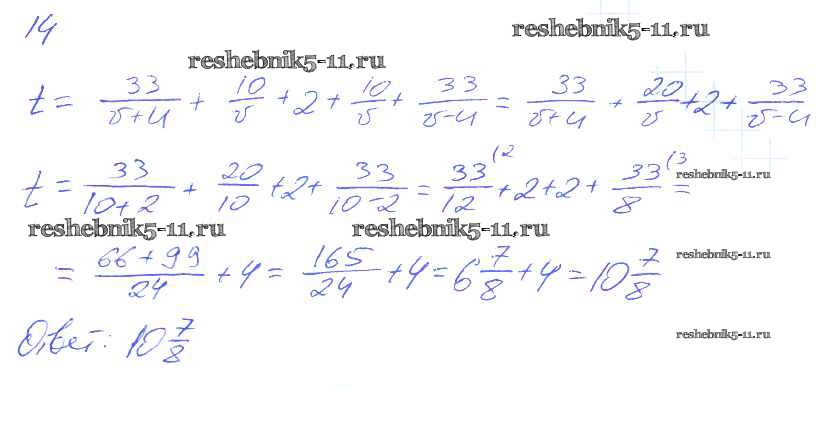 14
reshebnik5-11.ru
reshebnik5-11.ru
t = 33/(v+u) + 10/v + 2 + 10/v + 33/(v-u) = 33/(v+u) + 20/v + 2 + 33/(v-u)
t = 33/(10+2) + 20/10 + 2 + 33/(10-2) = 33(2/12 + 2 + 2 + 33(3/8 =
reshebnik5-11.ru
reshebnik5-11.ru
reshebnik5-11.ru
= (66+99)/24 + 4 = 165/24 + 4 = 6 7/8 + 4 = 10 7/8
reshebnik5-11.ru
Ответ: 10 7/8
reshebnik5-11.ru